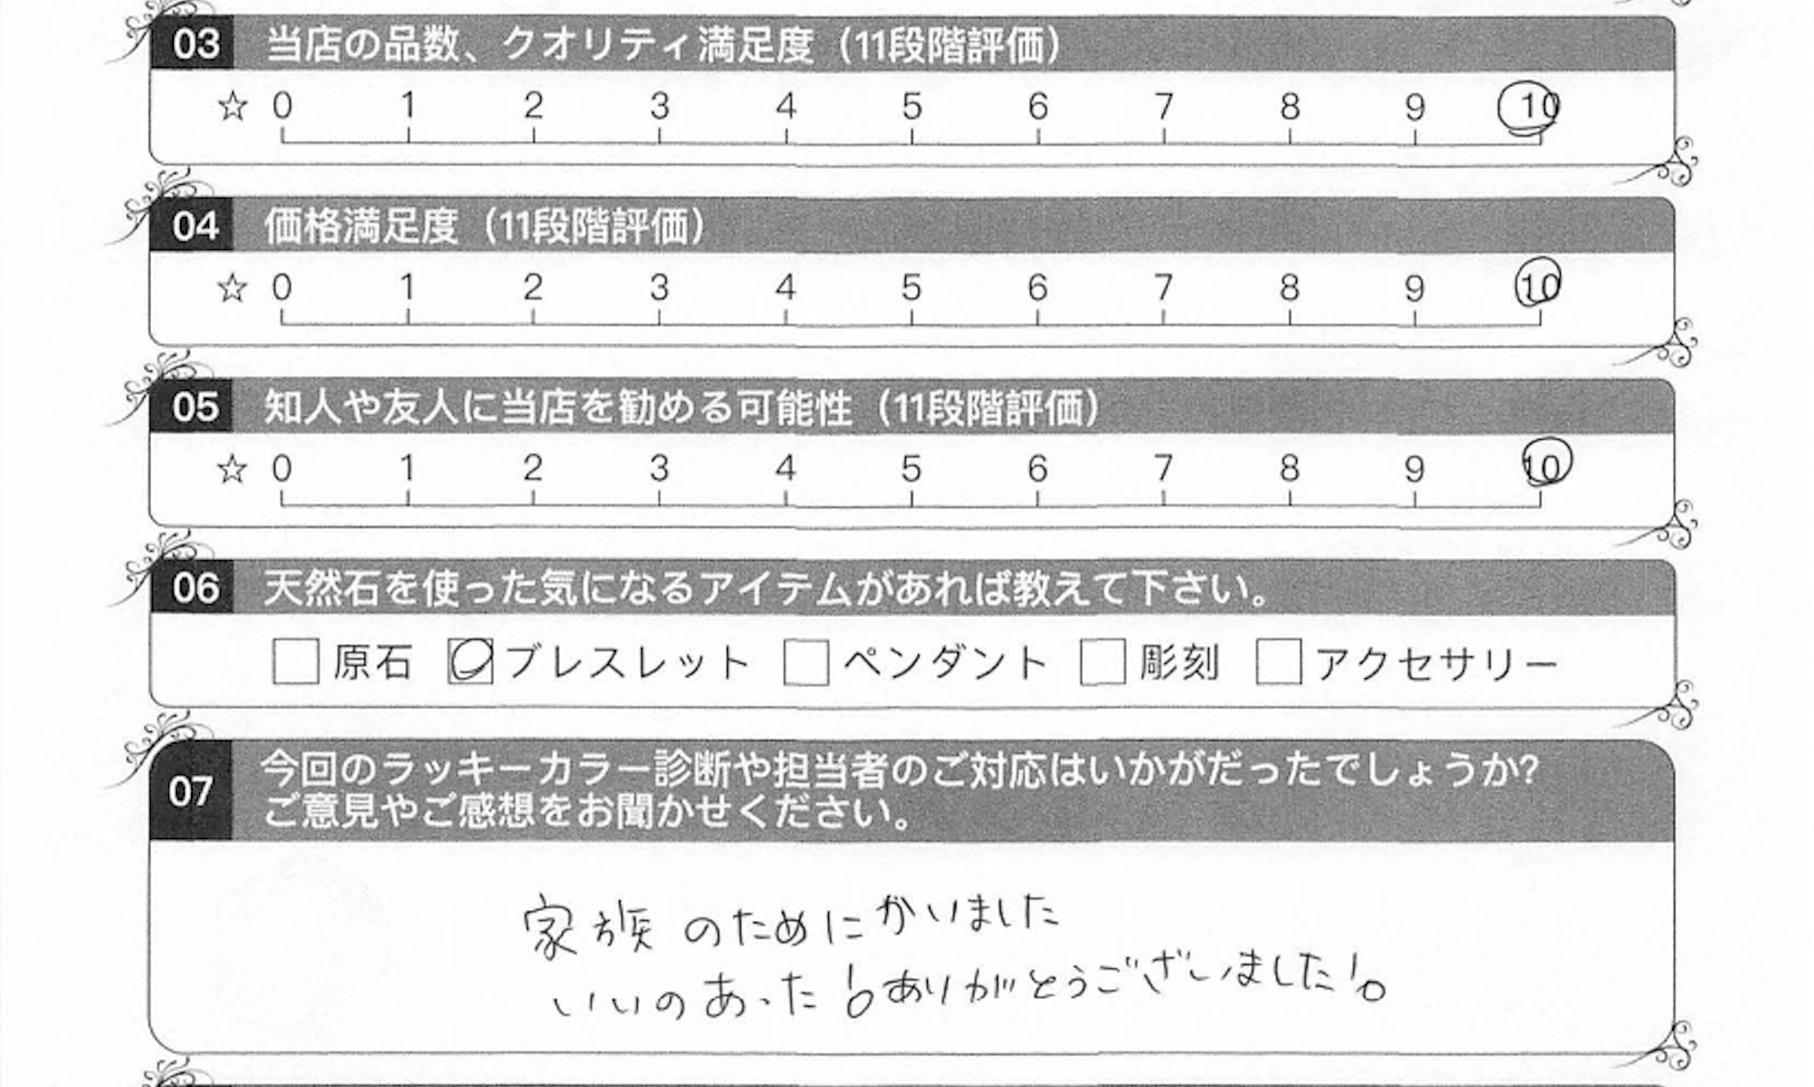 03 当店の品数、クオリティ満足度（11段階評価）
☆ 0 1 2 3 4 5 6 7 8 9 10
04 価格満足度（11段階評価）
☆ 0 1 2 3 4 5 6 7 8 9 10
05 知人や友人に当店を勧める可能性（11段階評価）
☆ 0 1 2 3 4 5 6 7 8 9 10
06 天然石を使った気になるアイテムがあれば教えて下さい。
原石 ブレスレット ペンダント 彫刻 アクセサリー
07 今回のラッキーカラー診断や担当者のご対応はいかがだったでしょうか?
ご意見やご感想をお聞かせください。
家族のためにかいました
いいのあった!ありがとうございました!